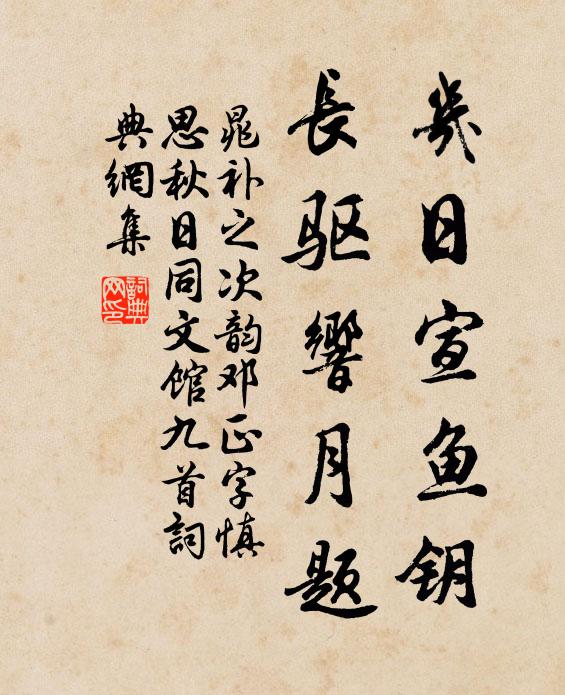 幾日宣鱼钥
長驱響月题
晁补之次韵邓正字慎
思秋日同文馆九首詞
典網集
詞典
网印